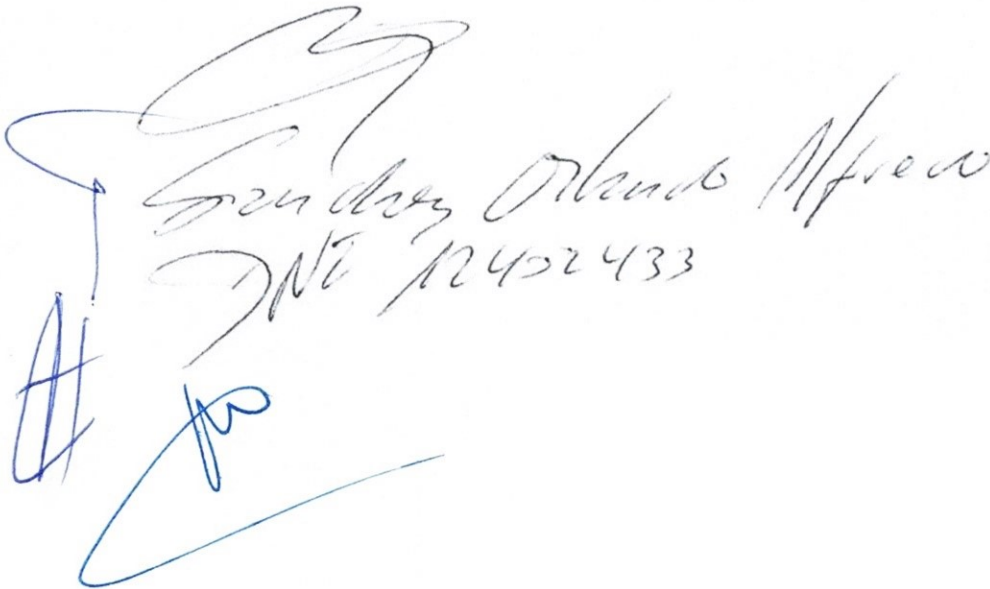 Sanchez Orlando Alfredo
DNI 12402433